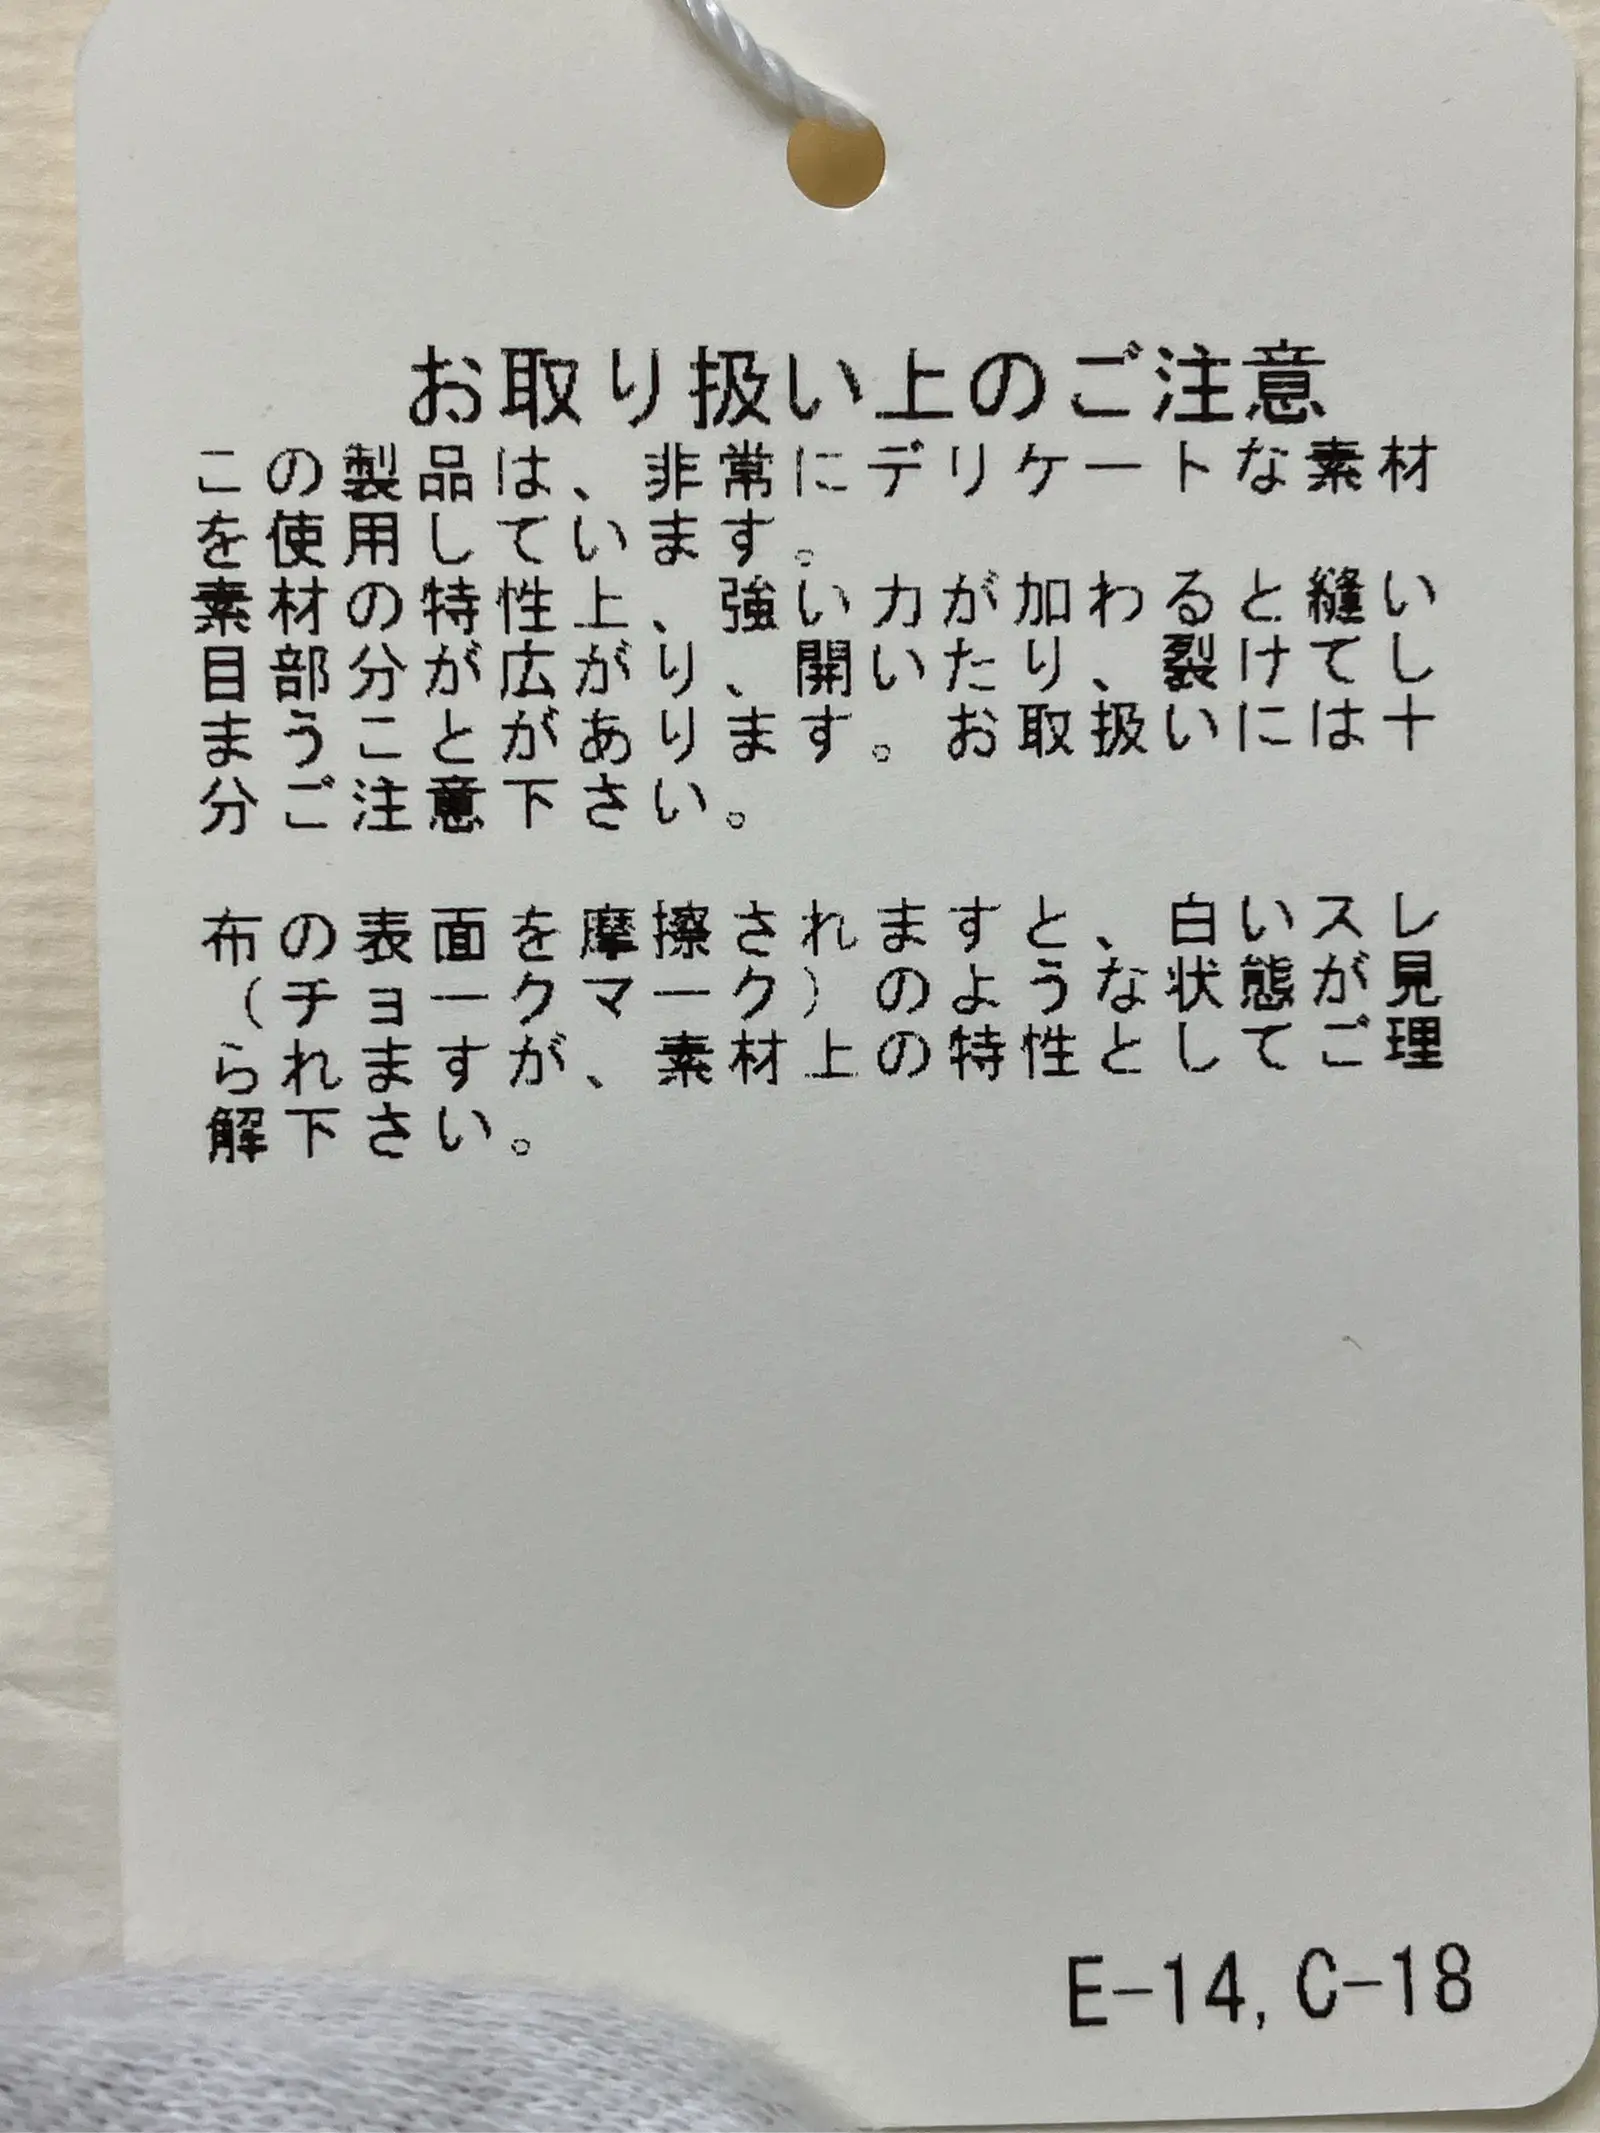 お取り扱い上のご注意
この製品は、非常にデリケートな素材
を使用しています。
素材の特性上、強い力が加わると縫い
目部分が広がり、開いたり、裂けてし
まうことがあります。お取扱いには十
分ご注意下さい。
布の表面を摩擦されますと、白いスレ
（チョークマーク）のような状態が見
られますが、素材上の特性としてご理
解下さい。
E-14,C-18